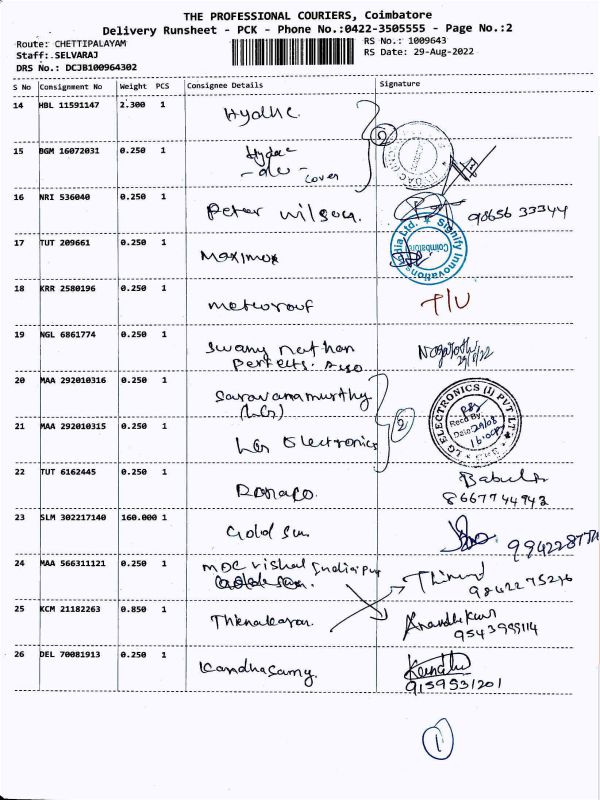 THE PROFESSIONAL COURIERS, Coimbatore
Delivery Runsheet - PCK - Phone No.:0422-3505555 - Page No.:2
Route: CHETTIPALAYAM RS No.: 1009643
Staff: SELVARAJ RS Date: 29-Aug-2022
DRS No.: DCJB100964302
S No Consignment No Weight PCS Consignee Details Signature
14 HBL 11591147 2.300 1
15 BGM 16072031 0.250 1
cover
16 NRI 536040 0.250 1 Peter wilson. 98656 33344
Signify Innovations India Ltd. Coimbatore
17 TUT 209661 0.250 1
18 KRR 2580196 0.250 1 T/U
19 NGL 6861774 0.250 1 Swamy nathan
20 MAA 292010316 0.250 1 Saravanamurthy
(LG)
2
LG ELECTRONICS (I) PVT LTD
Recd By
Date: 29/08
21 MAA 292010315 0.250 1 LG Electronics
22 TUT 6162445 0.250 1
8667744943
23 SLM 302217140 160.000 1 Gold Sun
24 MAA 566311121 0.250 1 MDC vishal
9842275276
25 KCM 21182263 0.850 1 Thenakaran.
26 DEL 70081913 0.250 1 Kandhasamy.
9159531201
1